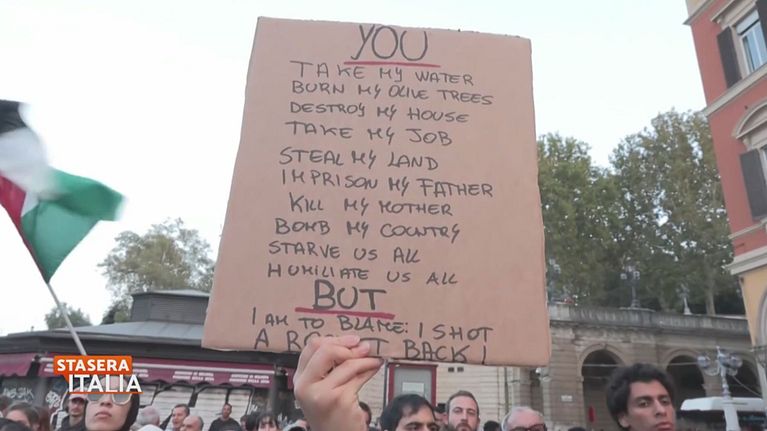 YOU
TAKE MY WATER
BURN MY OLIVE TREES
DESTROY MY HOUSE
TAKE MY JOB
STEAL MY LAND
IMPRISON MY FATHER
KILL MY MOTHER
BOMB MY COUNTRY
STARVE US ALL
HUMILIATE US ALL
BUT
I AM TO BLAME: I SHOT
A ROCKET BACK!
STASERA
ITALIA